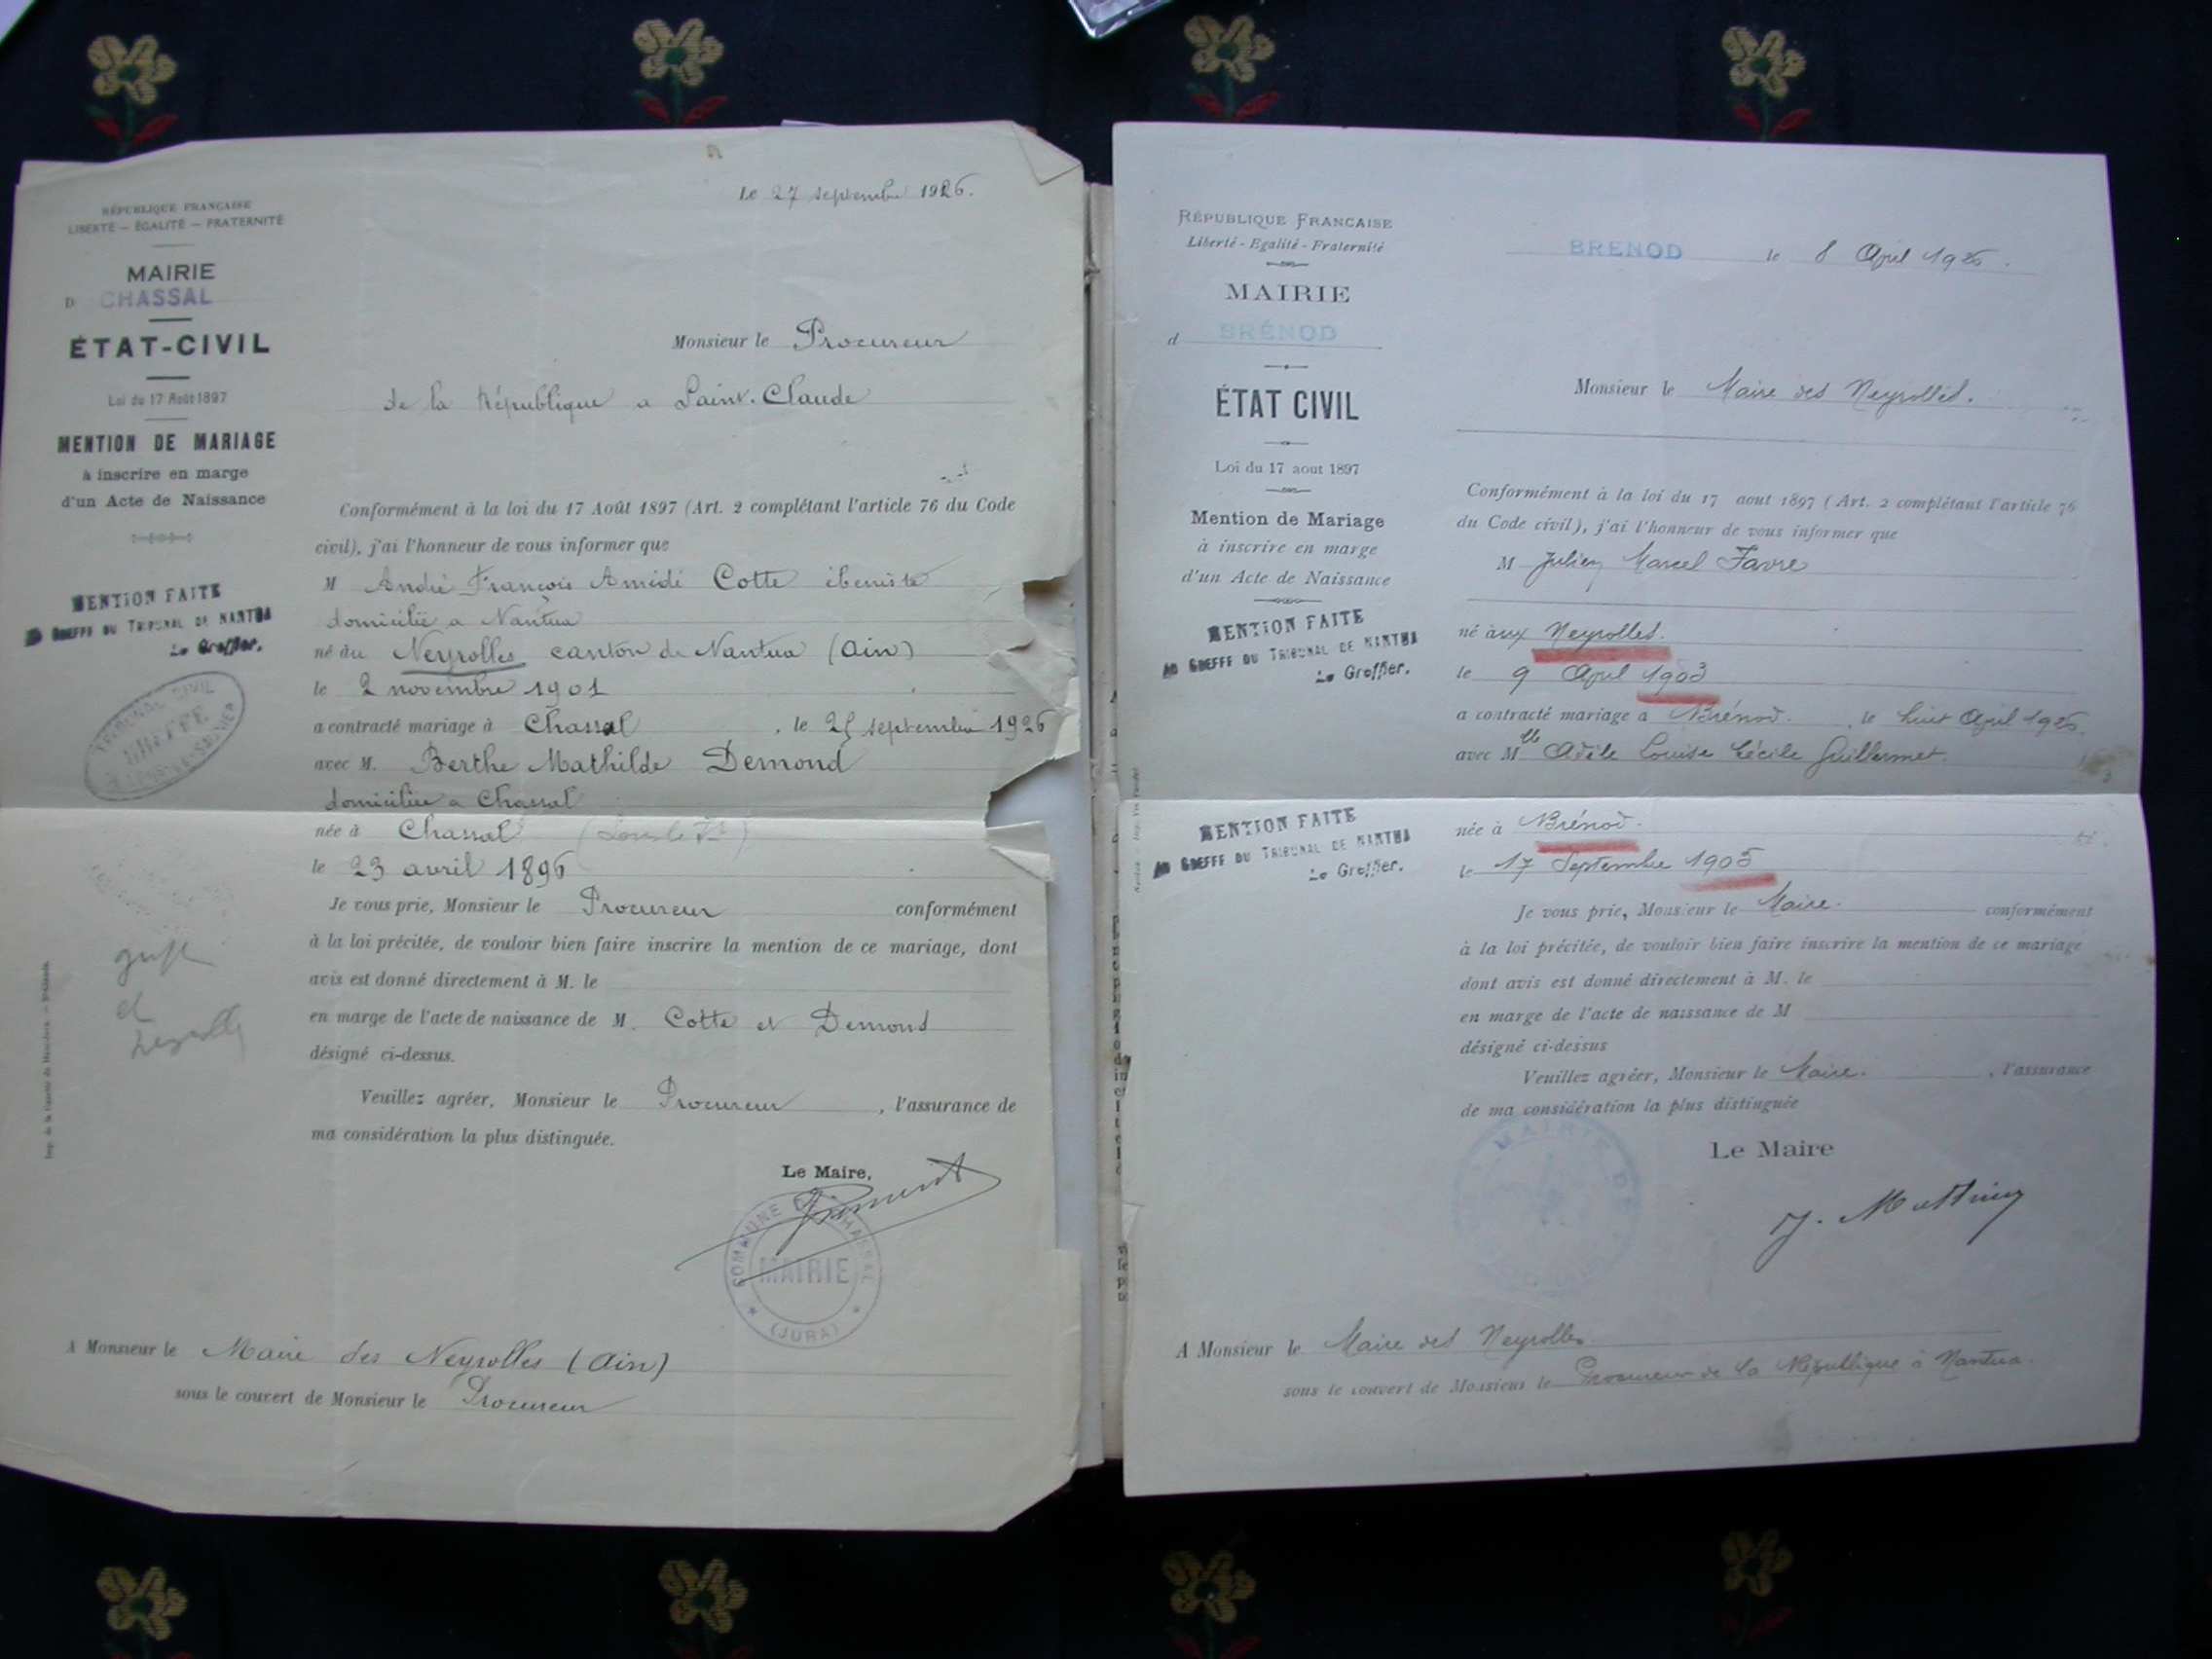 Le 27 septembre 1926.
RÉPUBLIQUE FRANÇAISE
LIBERTÉ – ÉGALITÉ – FRATERNITÉ
MAIRIE
D CHASSAL
ÉTAT-CIVIL
Loi du 17 Août 1897
MENTION DE MARIAGE
à inscrire en marge
d'un Acte de Naissance
MENTION FAITE
AU GREFFE DU TRIBUNAL DE NANTUA
Le Greffier.
TRIBUNAL CIVIL
GREFFE
Monsieur le Procureur
de la République a Saint-Claude
Conformément à la loi du 17 Août 1897 (Art. 2 complétant l'article 76 du Code
civil), j'ai l'honneur de vous informer que
M André François Amédé Cotte ébeniste
domicilié a Nantua
né au Neyrolles canton de Nantua (Ain)
le 2 novembre 1901
a contracté mariage à Chassal, le 25 septembre 1926
avec M. Berthe Mathilde Demond
domiciliée a Chassal
née à Chassal
le 23 avril 1896
Je vous prie, Monsieur le Procureur conformément
à la loi précitée, de vouloir bien faire inscrire la mention de ce mariage, dont
avis est donné directement à M. le
en marge de l'acte de naissance de M. Cotte et Demond
désigné ci-dessus.
Veuillez agréer, Monsieur le Procureur, l'assurance de
ma considération la plus distinguée.
Le Maire,
COMMUNE DE CHASSAL
MAIRIE
(JURA)
A Monsieur le Maire des Neyrolles (Ain)
sous le couvert de Monsieur le Procureur
RÉPUBLIQUE FRANCAISE
Liberté - Egalité - Fraternité
MAIRIE
d BRÉNOD
ÉTAT CIVIL
Loi du 17 aout 1897
Mention de Mariage
à inscrire en marge
d'un Acte de Naissance
MENTION FAITE
AU GREFFE DU TRIBUNAL DE NANTUA
Le Greffier.
MENTION FAITE
AU GREFFE DU TRIBUNAL DE NANTUA
Le Greffier.
BRENOD le 8 April 1926.
Monsieur le Maire des Neyrolles.
Conformément à la loi du 17 aout 1897 (Art. 2 complétant l'article 76
du Code civil), j'ai l'honneur de vous informer que
M Julien Marcel Favre
né aux Neyrolles.
le 9 April 1903
a contracté mariage a Brénod., le huit April 1926.
avec Mlle Adèle Louise Cécile Guillermet
née à Brénod.
le 17 Septembre 1905
Je vous prie, Monsieur le Maire. conformément
à la loi précitée, de vouloir bien faire inscrire la mention de ce mariage
dont avis est donné directement à M. le
en marge de l'acte de naissance de M
désigné ci-dessus
Veuillez agréer, Monsieur le Maire., l'assurance
de ma considération la plus distinguée
Le Maire
MAIRIE DE
A Monsieur le Maire des Neyrolles
sous le couvert de Monsieur le Procureur de la République à Nantua.